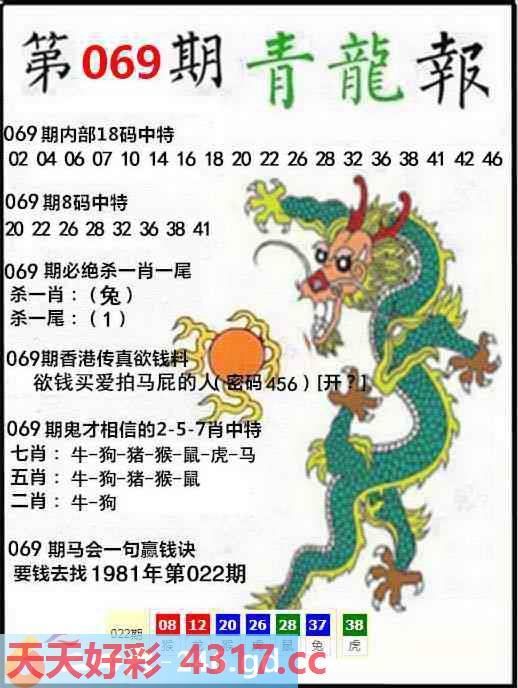 第069期 青龍報
069期内部18码中特
02 04 06 07 10 14 16 18 20 22 26 28 32 36 38 41 42 46
069期8码中特
20 22 26 28 32 36 38 41
069 期必绝杀一肖一尾
杀一肖：（兔）
杀一尾：（1）
069期香港传真欲钱料
欲钱买爱拍马屁的人(密码456)[开？]
069期鬼才相信的2-5-7肖中特
七肖：牛-狗-猪-猴-鼠-虎-马
五肖：牛-狗-猪-猴-鼠
二肖：牛-狗
069 期马会一句赢钱诀
要钱去找1981年第022期
022期 08 12 20 26 28 37 38
猴 龙 猴 虎 鼠 兔 虎
天天好彩 4317.cc